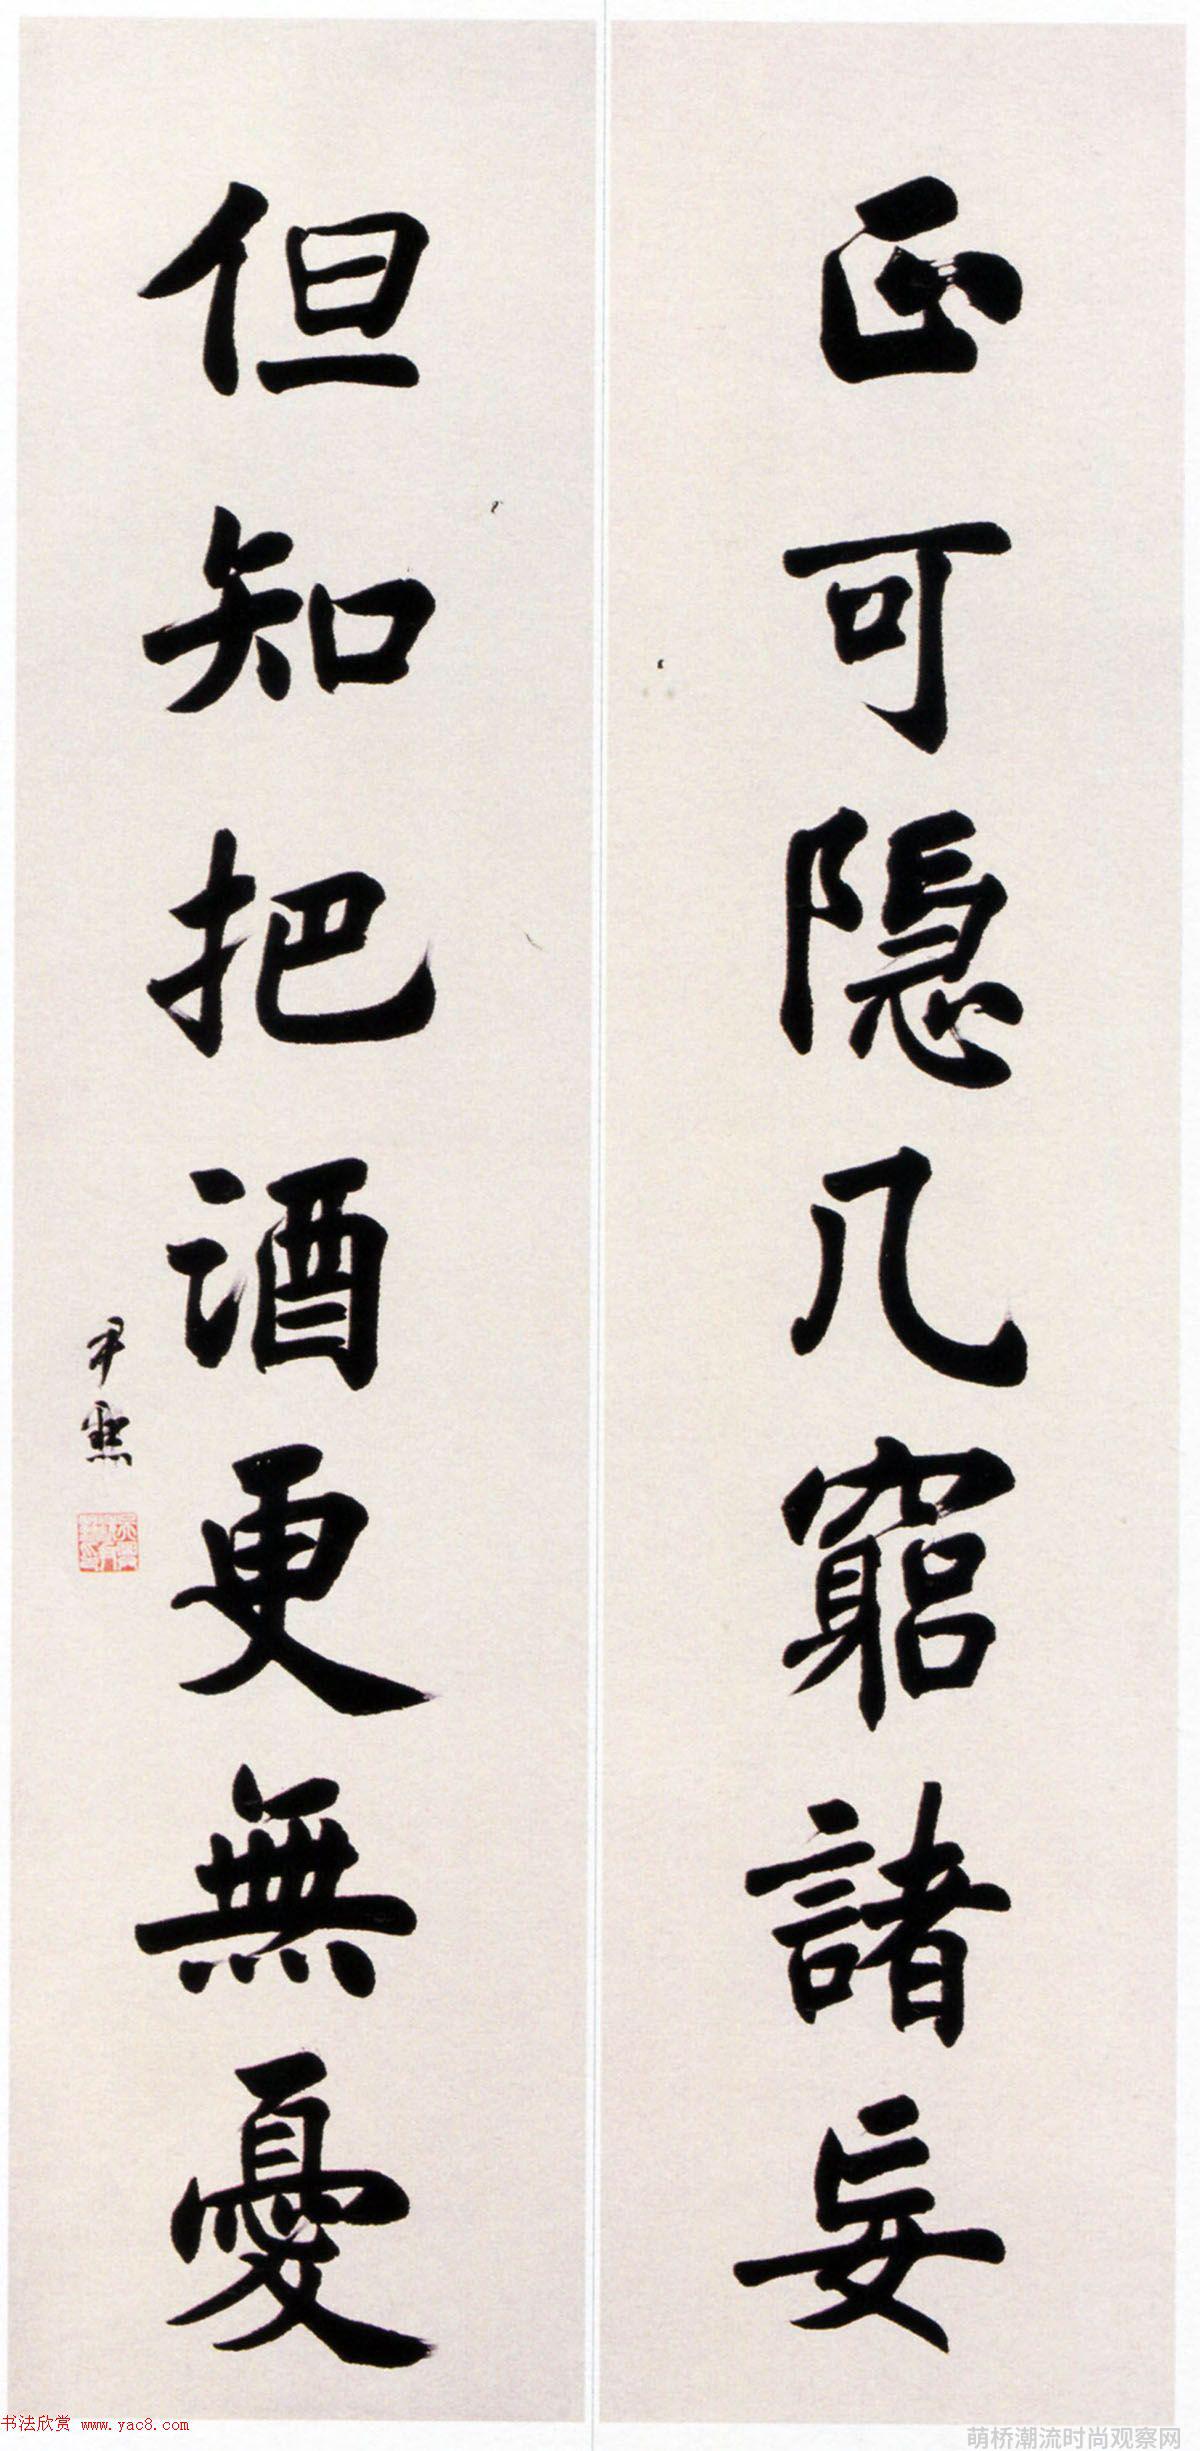 正可隱几窮諸妄
但知把酒更無憂
尹默
书法欣赏 www.yac8.com
萌桥潮流时尚观察网